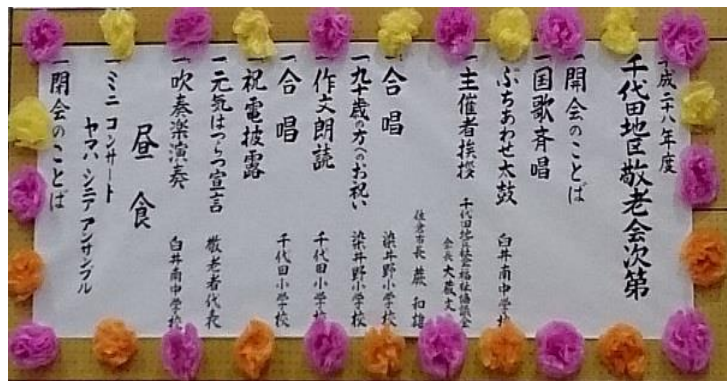 平成二十八年度
千代田地区敬老会次第
一開会のことば
一国歌斉唱
一ぶちあわせ太鼓　臼井南中学校
一主催者挨拶　千代田地区社会福祉協議会
会長 大蔵文
佐倉市長 蕨 和雄
一合唱　染井野小学校
一九十歳の方へのお祝い　染井野小学校
一作文朗読　千代田小学校
一合唱　千代田小学校
一祝電披露
一元気はつらつ宣言　敬老者代表
一吹奏楽演奏　臼井南中学校
昼食
一ミニコンサート
ヤマハシニアアンサンブル
一閉会のことば